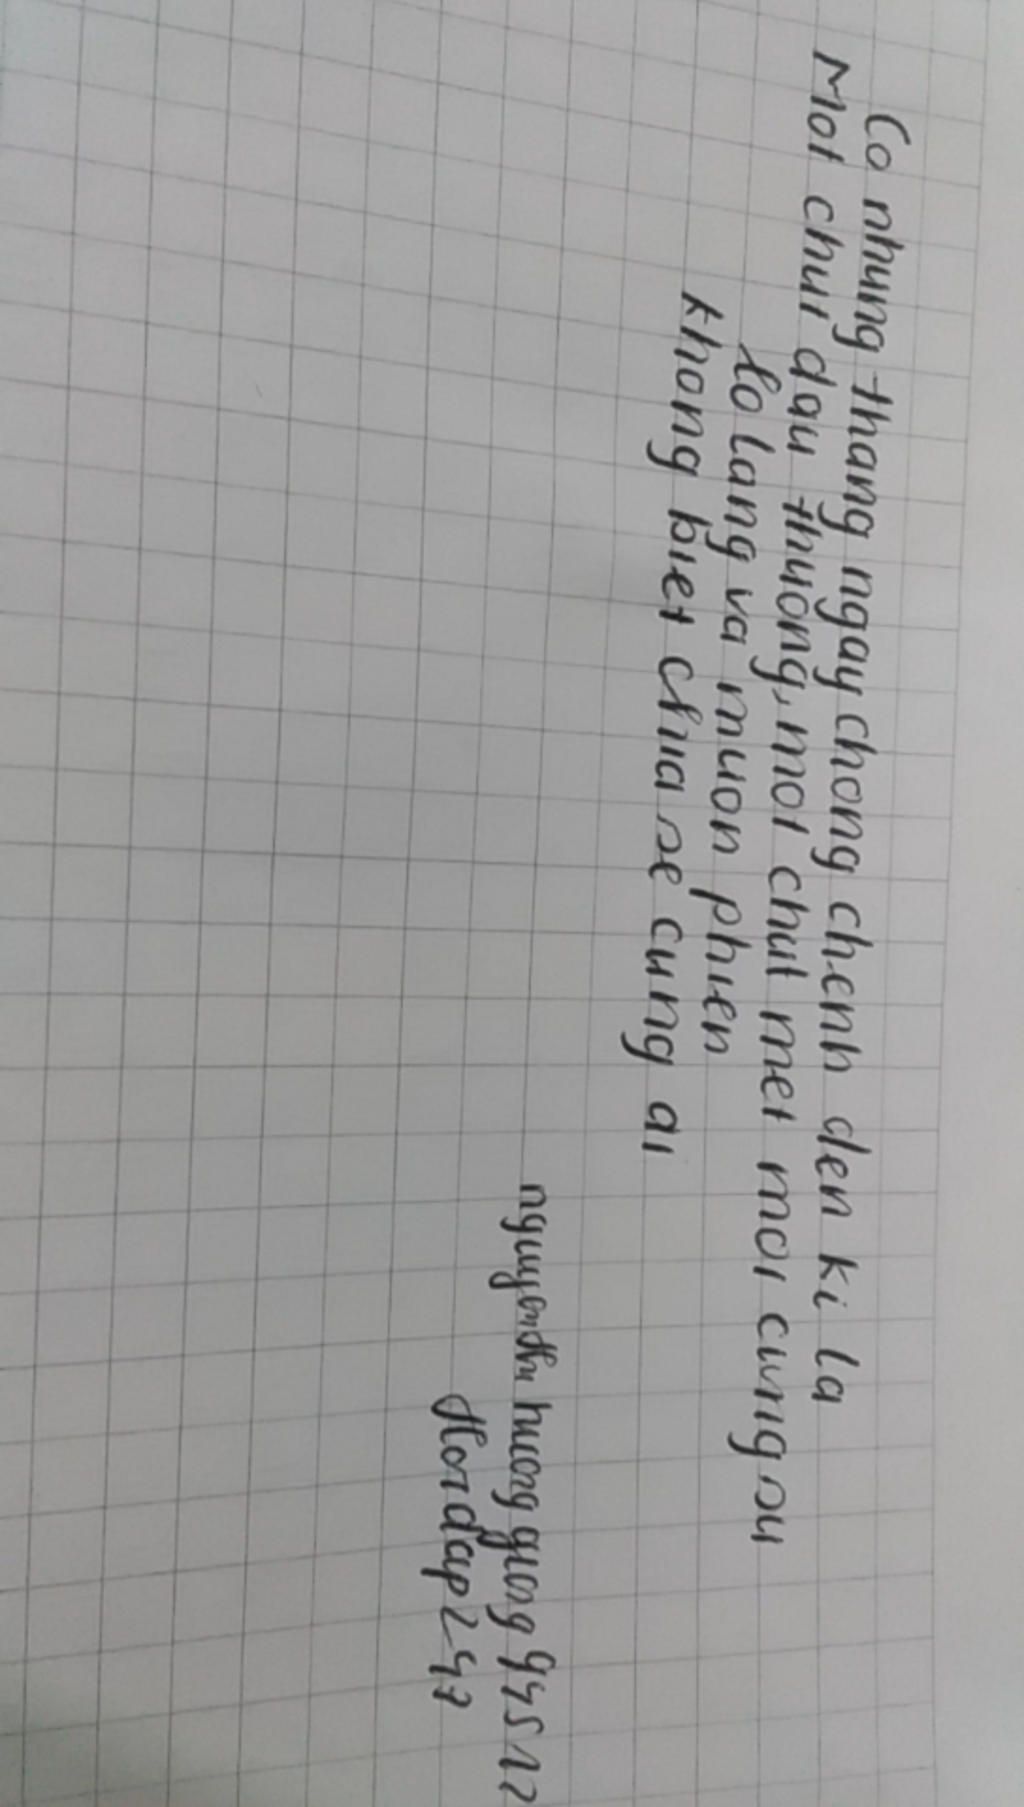 Co nhung thang ngay chong chenh den ki la
Mot chut dau thuong, mot chut met moi cung su
Lo lang va muon phien
khong biet chia se cung ai
nguyenthi huong giang 94512
Hoidap247